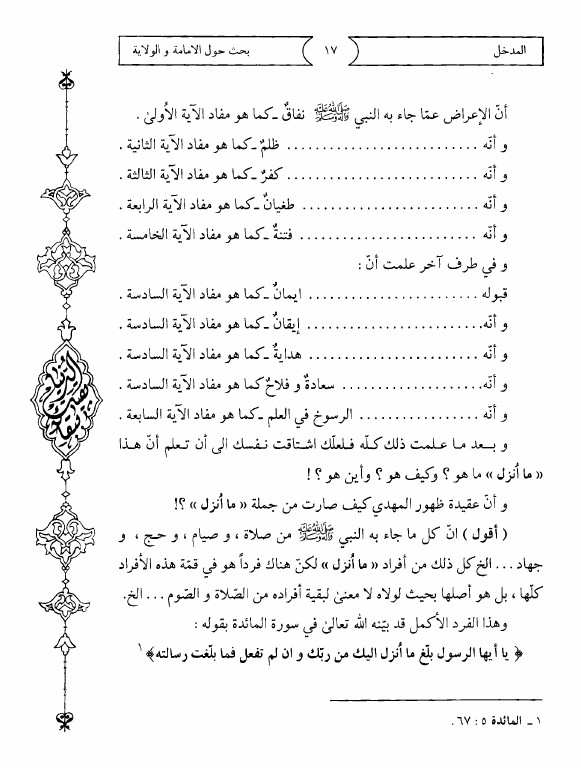 المدخل
١٧
بحث حول الامامة و الولاية
أنّ الإعراض عمّا جاء به النبي ﷺ نفاقٌ ـ كما هو مفاد الآية الأولىٰ .
و أنّه .......................... ظلمٌ ـ كما هو مفاد الآية الثانية .
و أنّه .......................... كفرٌ ـ كما هو مفاد الآية الثالثة .
و أنّه ........................ طغيانٌ ـ كما هو مفاد الآية الرابعة .
و أنّه ........................ فتنةٌ ـ كما هو مفاد الآية الخامسة .
و في طرف آخر علمت أنّ :
قبوله ....................... ايمانٌ ـ كما هو مفاد الآية السادسة .
و أنّه........................ إيقانٌ ـ كما هو مفاد الآية السادسة .
و أنّه ....................... هدايةٌ ـ كما هو مفاد الآية السادسة .
و أنّه................... سعادةٌ و فلاحٌ كما هو مفاد الآية السادسة .
و أنّه ................ الرسوخ في العلم ـ كما هو مفاد الآية السابعة .
و بـعد مـا عـلمت ذلك كـلّه فـلعلّك اشـتاقت نـفسك الى أن تـعلم أنّ هـذا
« ما أنزل » ما هو ؟ وكيف هو ؟ وأين هو ؟ !
و أنّ عقيدة ظهور المهدي كيف صارت من جملة « ما أنزل » ؟!
( أقول ) انّ كل ما جاء به النبي ﷺ من صلاة ، و صيام ، و حج ، و
جهاد ... الخ كل ذلك من أفراد « ما أنزل » لكنّ هناك فرداً هو في قمّة هذه الأفراد
كلّها ، بل هو أصلها بحيث لولاه لا معنىٰ لبقية أفراده من الصّلاة و الصّوم ... الخ.
وهذا الفرد الأكمل قد بيّنه الله تعالىٰ في سورة المائدة بقوله :
﴿ يا أيها الرسول بلّغ ما أنزل اليك من ربّك و ان لم تفعل فما بلّغت رسالته ﴾ ١
١ ـ المائدة ٥ : ٦٧ .